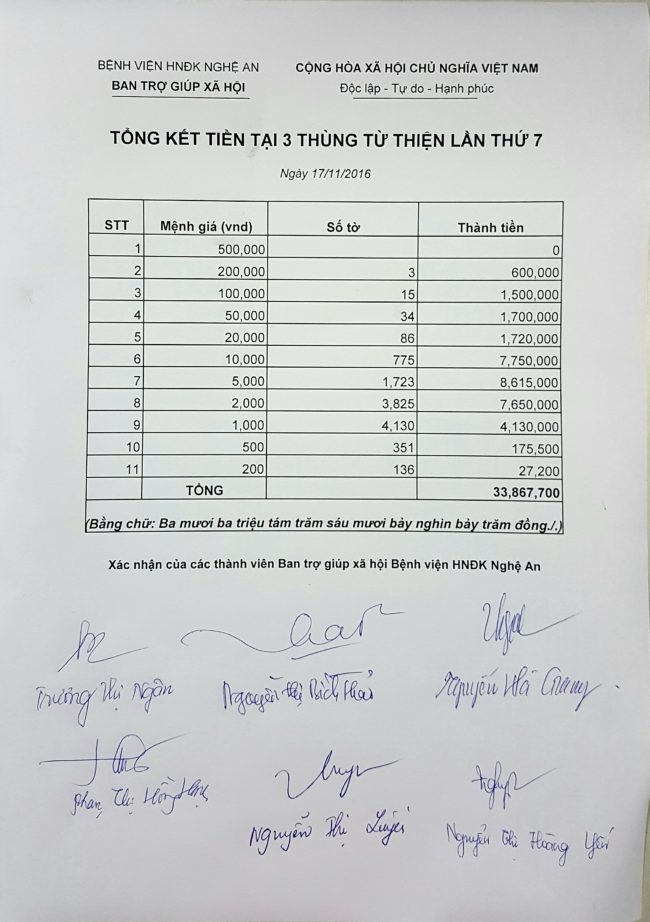 BỆNH VIỆN HNĐK NGHỆ AN
BAN TRỢ GIÚP XÃ HỘI
CỘNG HÒA XÃ HỘI CHỦ NGHĨA VIỆT NAM
Độc lập - Tự do - Hạnh phúc
TỔNG KẾT TIỀN TẠI 3 THÙNG TỪ THIỆN LẦN THỨ 7
Ngày 17/11/2016
STT Mệnh giá (vnd) Số tờ Thành tiền
1 500,000 0
2 200,000 3 600,000
3 100,000 15 1,500,000
4 50,000 34 1,700,000
5 20,000 86 1,720,000
6 10,000 775 7,750,000
7 5,000 1,723 8,615,000
8 2,000 3,825 7,650,000
9 1,000 4,130 4,130,000
10 500 351 175,500
11 200 136 27,200
TỔNG 33,867,700
(Bằng chữ: Ba mươi ba triệu tám trăm sáu mươi bảy nghìn bảy trăm đồng./.)
Xác nhận của các thành viên Ban trợ giúp xã hội Bệnh viện HNĐK Nghệ An
Trương Thị Ngân
Nguyễn Thị Bích
Nguyễn Hà
Phan Thị Hồng
Nguyễn Thị
Nguyễn Thị Hoàng